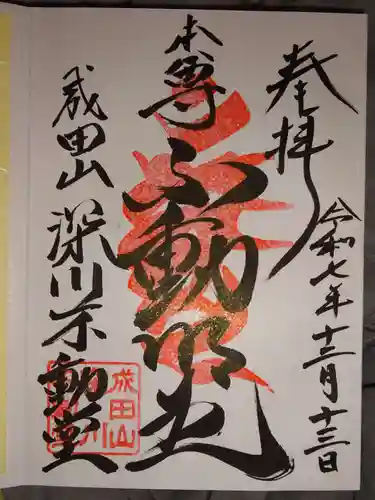 奉拝
令和七年十二月十三日
本尊
不動明王
成田山深川不動堂
成田山